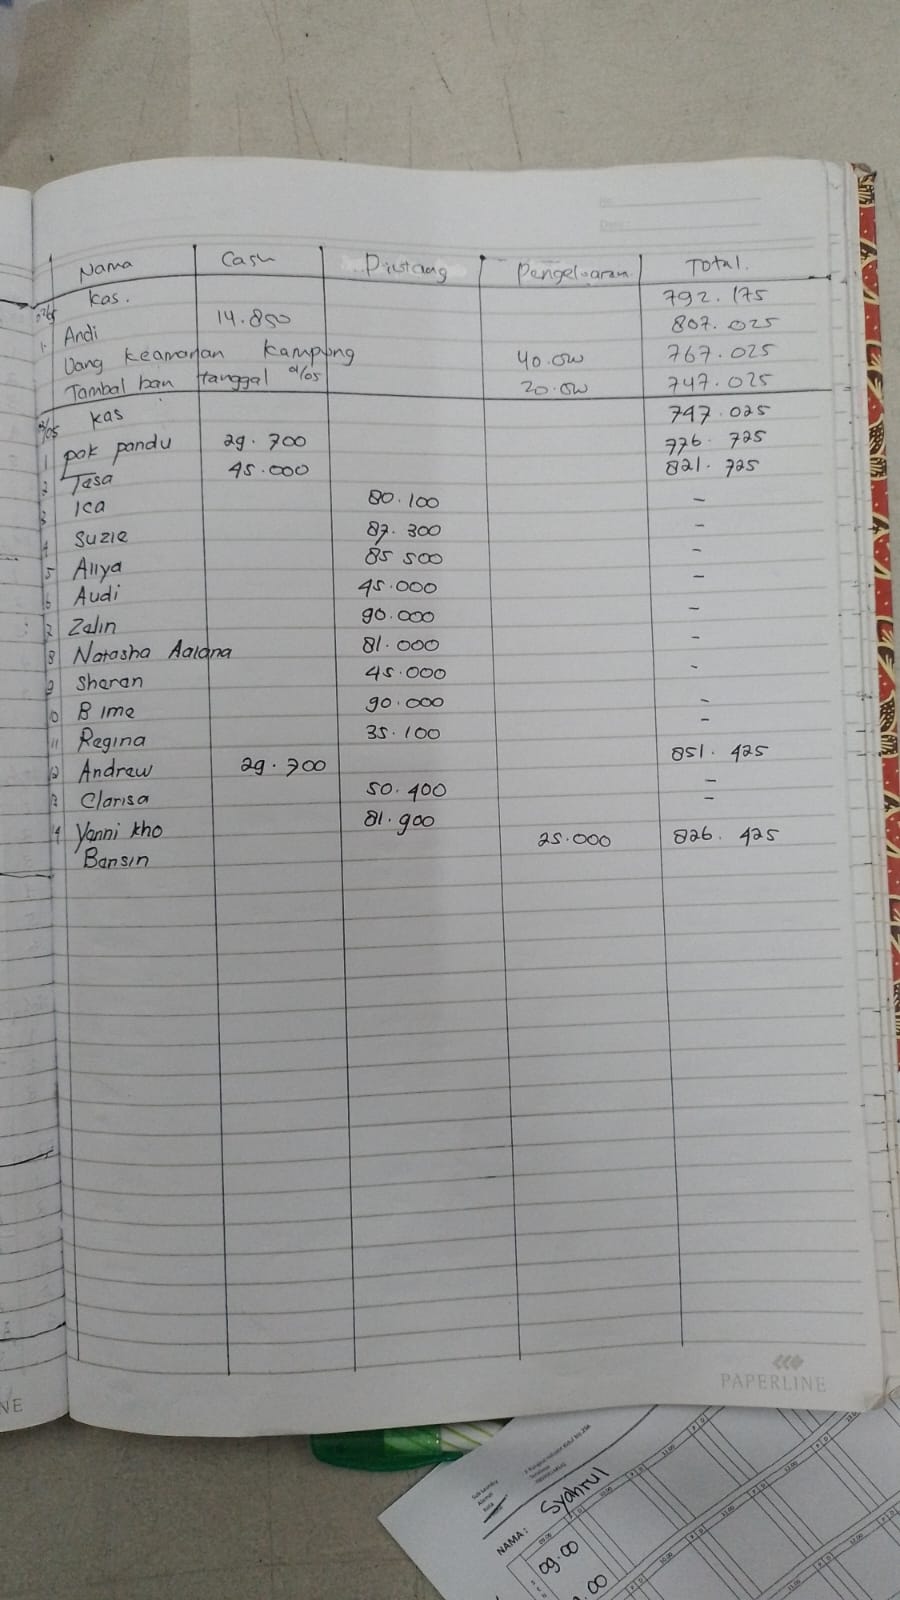 Nama Cash Piutang Pengeluaran Total.
02/05 kas. 792.175
1. Andi 14.850 807.025
Uang keamanan kampong 40.000 767.025
Tambal ban tanggal 2/05 20.000 747.025
3/05 kas 747.025
1 pak pandu 29.700 776.725
2 Tasa 45.000 821.725
3 Ica 80.100 -
4 Suzie 87.300 -
5 Aliya 85 500 -
6 Audi 45.000 -
7 Zalin 90.000 -
8 Natasha Aalana 81.000 -
9 Sharan 45.000 -
10 Bime 90.000 -
11 Regina 35.100 -
12 Andrew 29.700 851.425
3 Clarisa 50.400 -
4 Yanni kho 81.900 -
Bansin 25.000 826.425
PAPERLINE
NE
NAMA: Syahrul
09.00